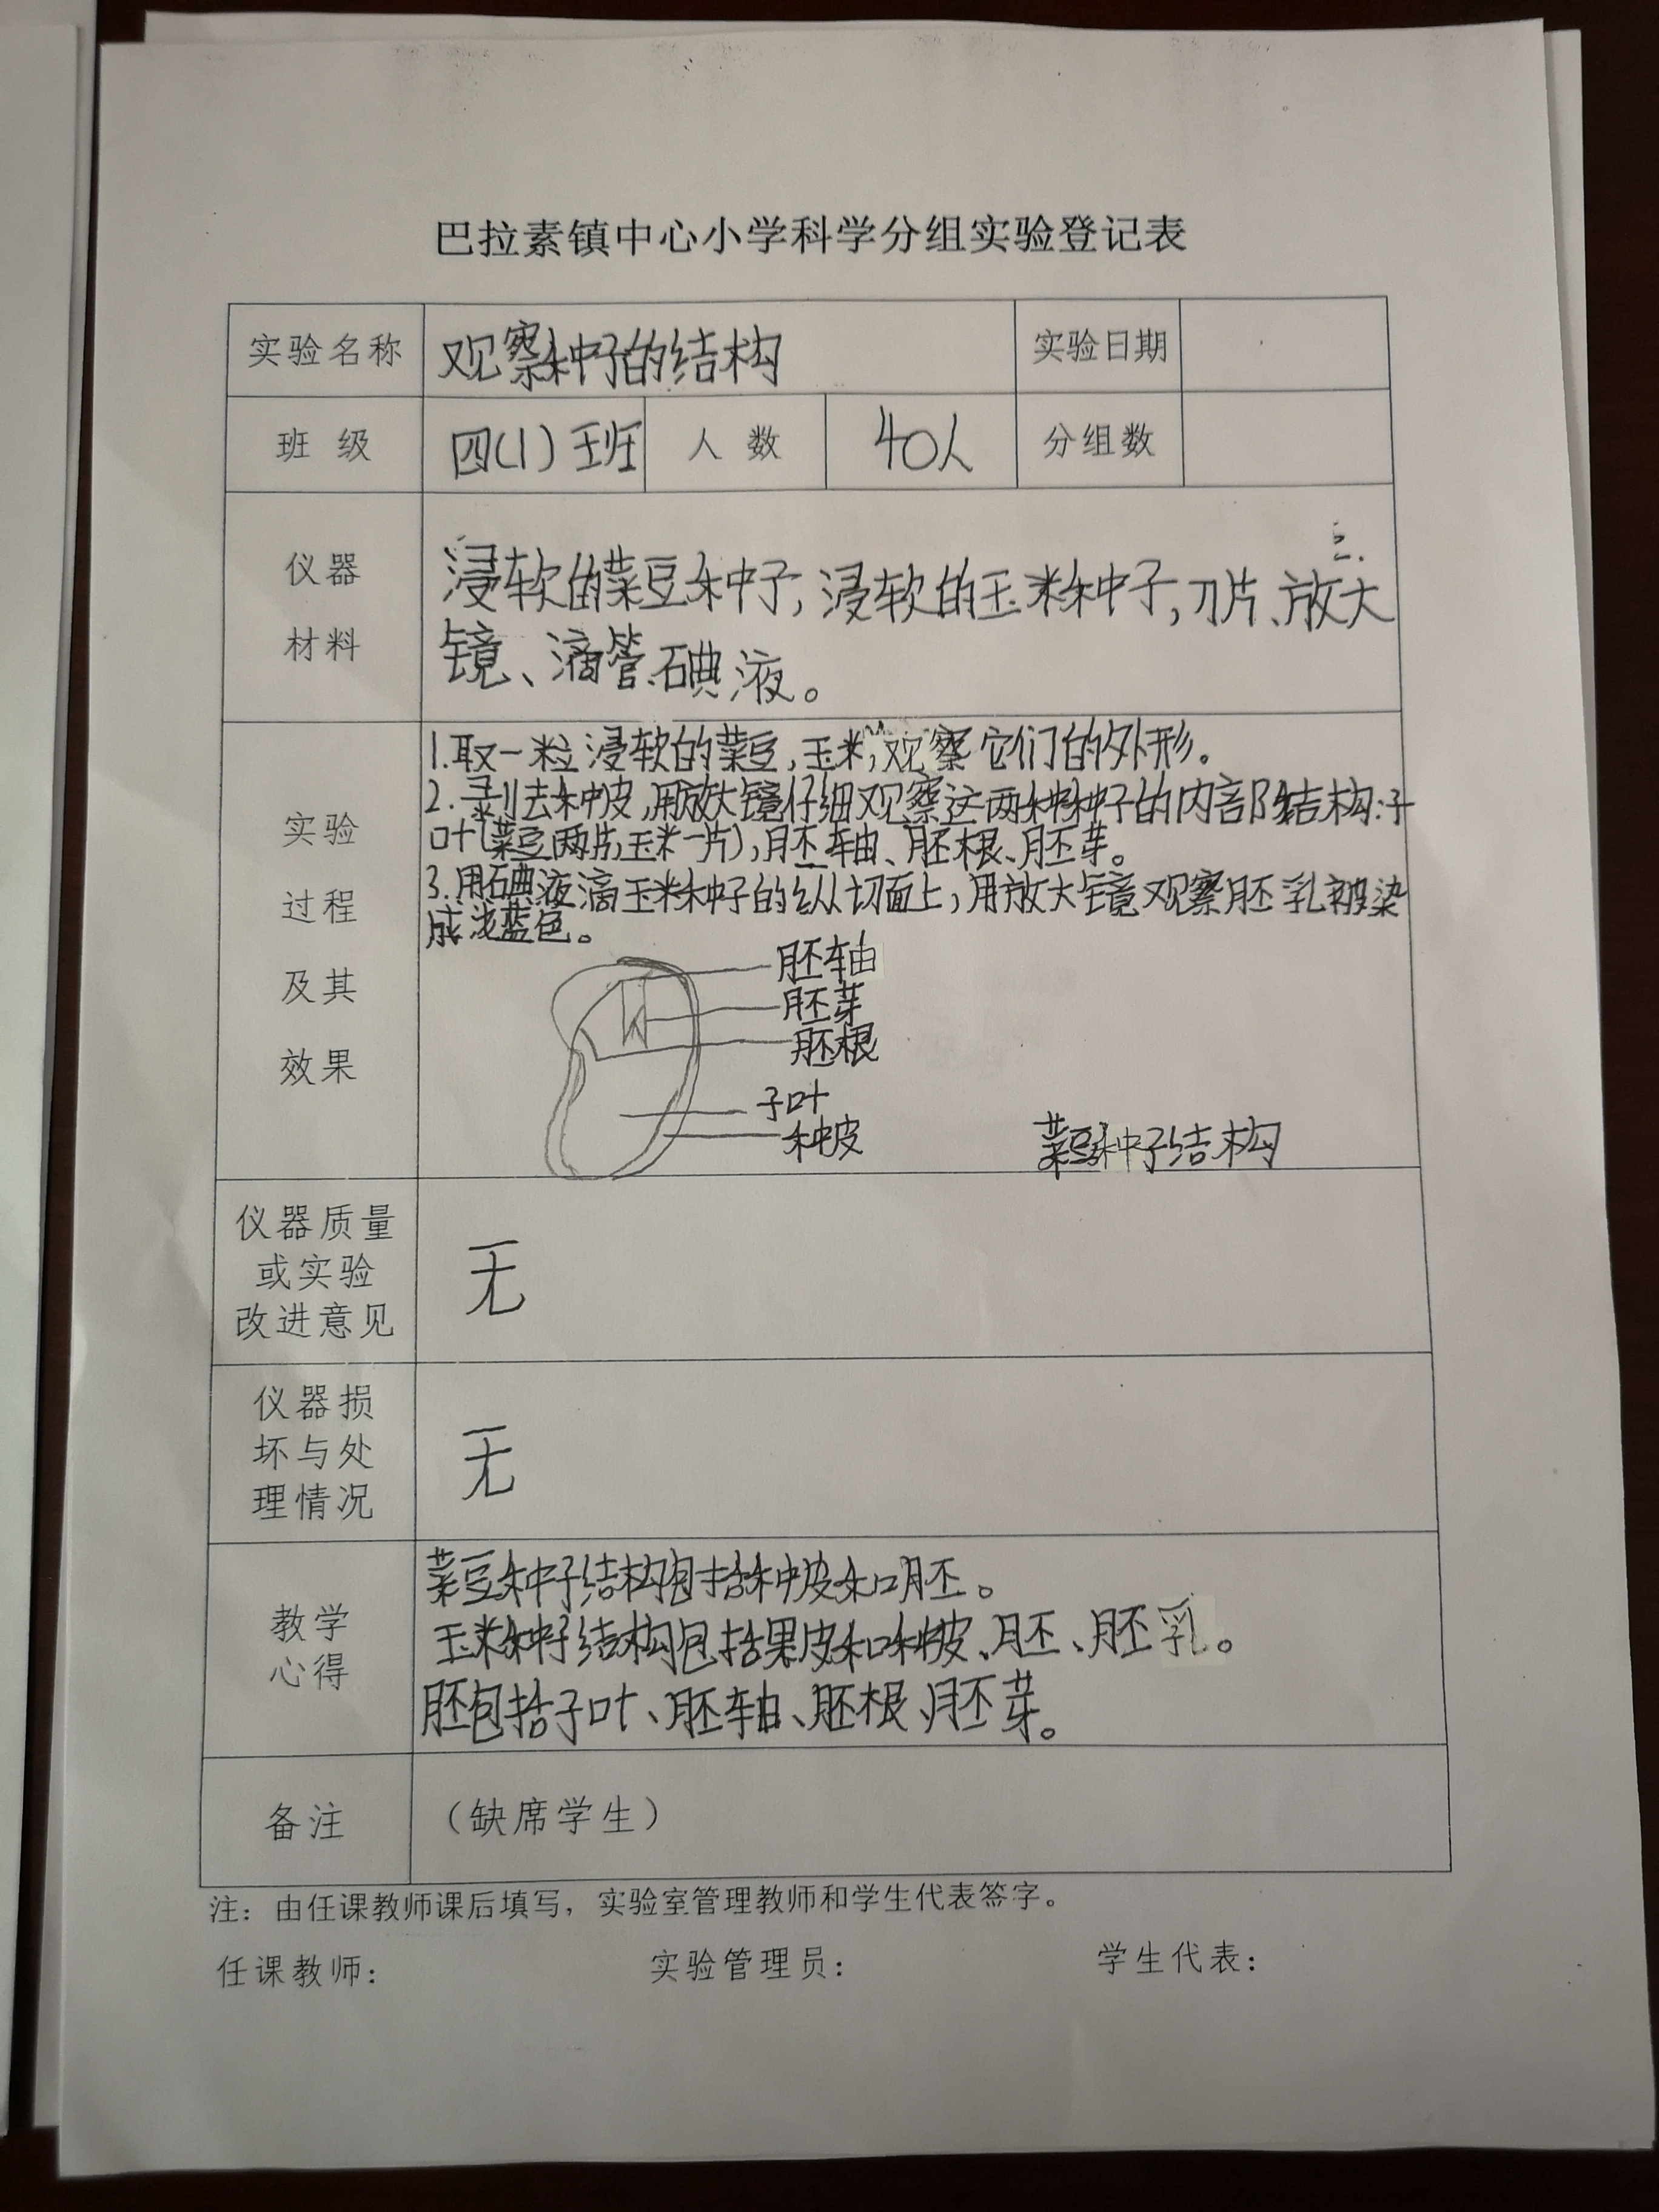 巴拉素镇中心小学科学分组实验登记表
实验名称 观察种子的结构 实验日期
班 级 四(1)班 人 数 40人 分组数
仪器
材料
浸软的菜豆种子,浸软的玉米种子,刀片、放大
镜、滴管、碘液。
实验
过程
及其
效果
1.取一粒浸软的菜豆,玉米,观察它们的外形。
2.剥去种皮,用放大镜仔细观察这两种种子的内部结构:子
叶(菜豆两片,玉米一片),胚轴、胚根、胚芽。
3.用碘液滴玉米种子的纵切面上,用放大镜观察胚乳被染
成浅蓝色。
胚轴
胚芽
胚根
子叶
种皮
菜豆种子结构
仪器质量
或实验
改进意见
无
仪器损
坏与处
理情况
无
教学
心得
菜豆种子结构包括种皮和胚。
玉米种子结构包括果皮和种皮、胚、胚乳。
胚包括子叶、胚轴、胚根、胚芽。
备注 （缺席学生）
注：由任课教师课后填写，实验室管理教师和学生代表签字。
任课教师： 实验管理员： 学生代表：